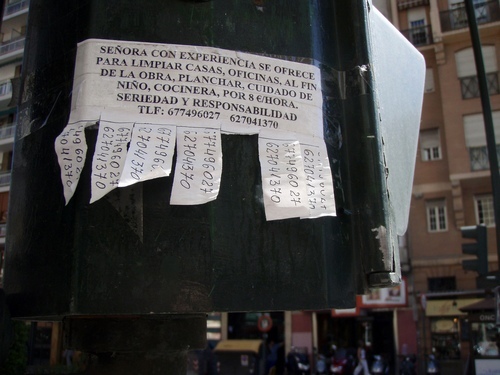 SEÑORA CON EXPERIENCIA SE OFRECE
PARA LIMPIAR CASAS, OFICINAS, AL FIN
DE LA OBRA, PLANCHAR, CUIDADO DE
NIÑO, COCINERA, POR 8 €/HORA.
SERIEDAD Y RESPONSABILIDAD
TLF: 677496027 627041370
677496027
627041370
677496027
627041370
677496027
627041370